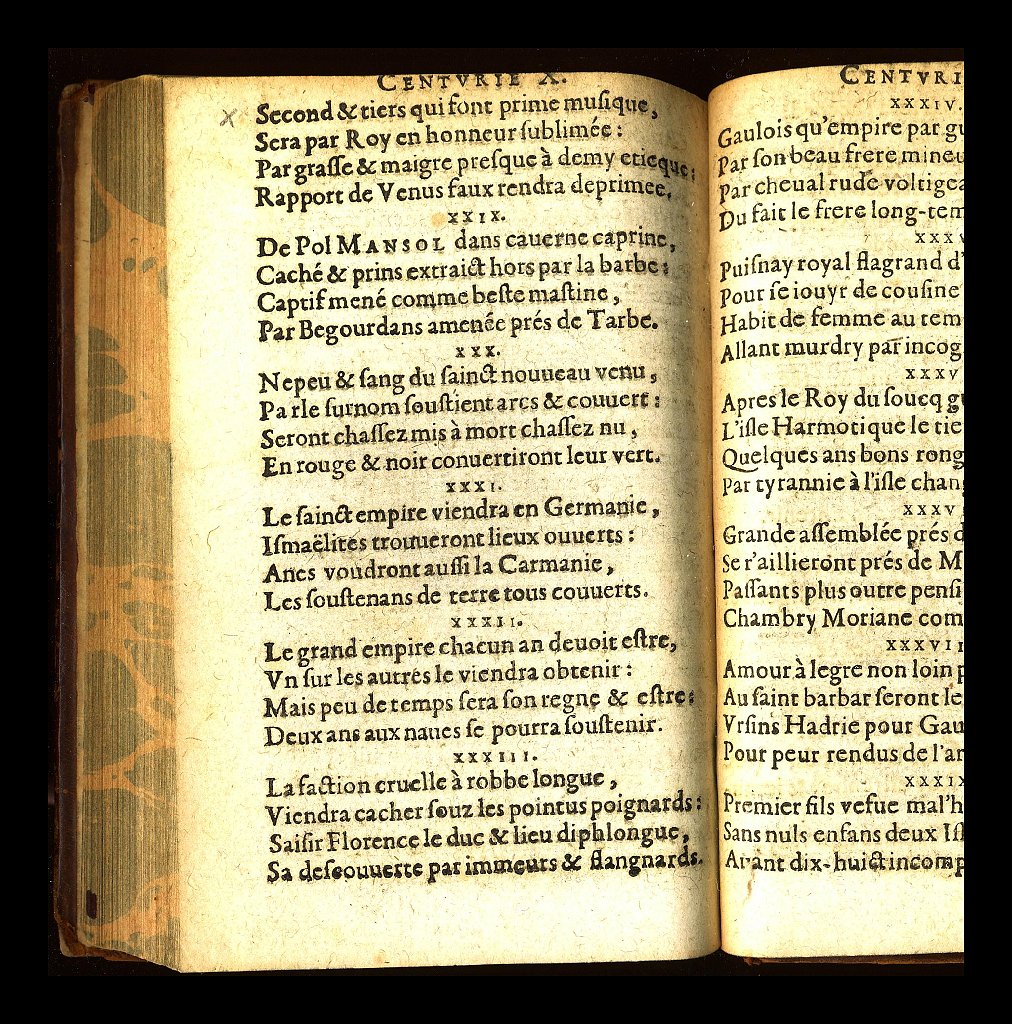 CENTVRIE X.
Second & tiers qui font prime muſique,
Sera par Roy en honneur ſublimée:
Par graſſe & maigre preſque à demy eticque:
Rapport de Venus faux rendra deprimee.
XXIX.
De Pol MANSOL dans cauerne caprine,
Caché & prins extraict hors par la barbe:
Captif mené comme beſte maſtine,
Par Begourdans amenée prés de Tarbe.
XXX.
Nepeu & ſang du ſainct nouueau venu,
Par le ſurnom ſouſtient arcs & couuert:
Seront chaſſez mis à mort chaſſez nu,
En rouge & noir conuertiront leur vert.
XXXI.
Le ſainct empire viendra en Germanie,
Iſmaëlites trouueront lieux ouuerts:
Anes voudront auſſi la Carmanie,
Les ſouſtenans de terre tous couuerts.
XXXII.
Le grand empire chacun an deuoit eſtre,
Vn ſur les autres le viendra obtenir:
Mais peu de temps ſera ſon regne & eſtre:
Deux ans aux naues ſe pourra ſouſtenir.
XXXIII.
La faction cruelle à robbe longue,
Viendra cacher ſouz les pointus poignards:
Saiſir Florence le duc & lieu diphlongue,
Sa deſcouuerte par immeurs & flangnards.
CENTVRI
XXXIV.
Gaulois qu'empire par gu
Par ſon beau frere mineu
Par cheual rude voltigea
Du fait le frere long-tem
XXXV
Puiſnay royal flagrand d'
Pour ſe iouyr de couſine
Habit de femme au tem
Allant murdry par incog
XXXV
Apres le Roy du ſoucq gu
L'iſle Harmotique le tie
Quelques ans bons rong
Par tyrannie à l'iſle chan
XXXV
Grande aſſemblée prés d
Se r'aillieront prés de M
Paſſants plus outre penſi
Chambry Moriane com
XXXVII
Amour à legre non loin p
Au ſaint barbar ſeront le
Vrſins Hadrie pour Gau
Pour peur rendus de l'ar
XXXIX
Premier fils veſue mal'h
Sans nuls enfans deux Iſl
Auant dix-huict incomp